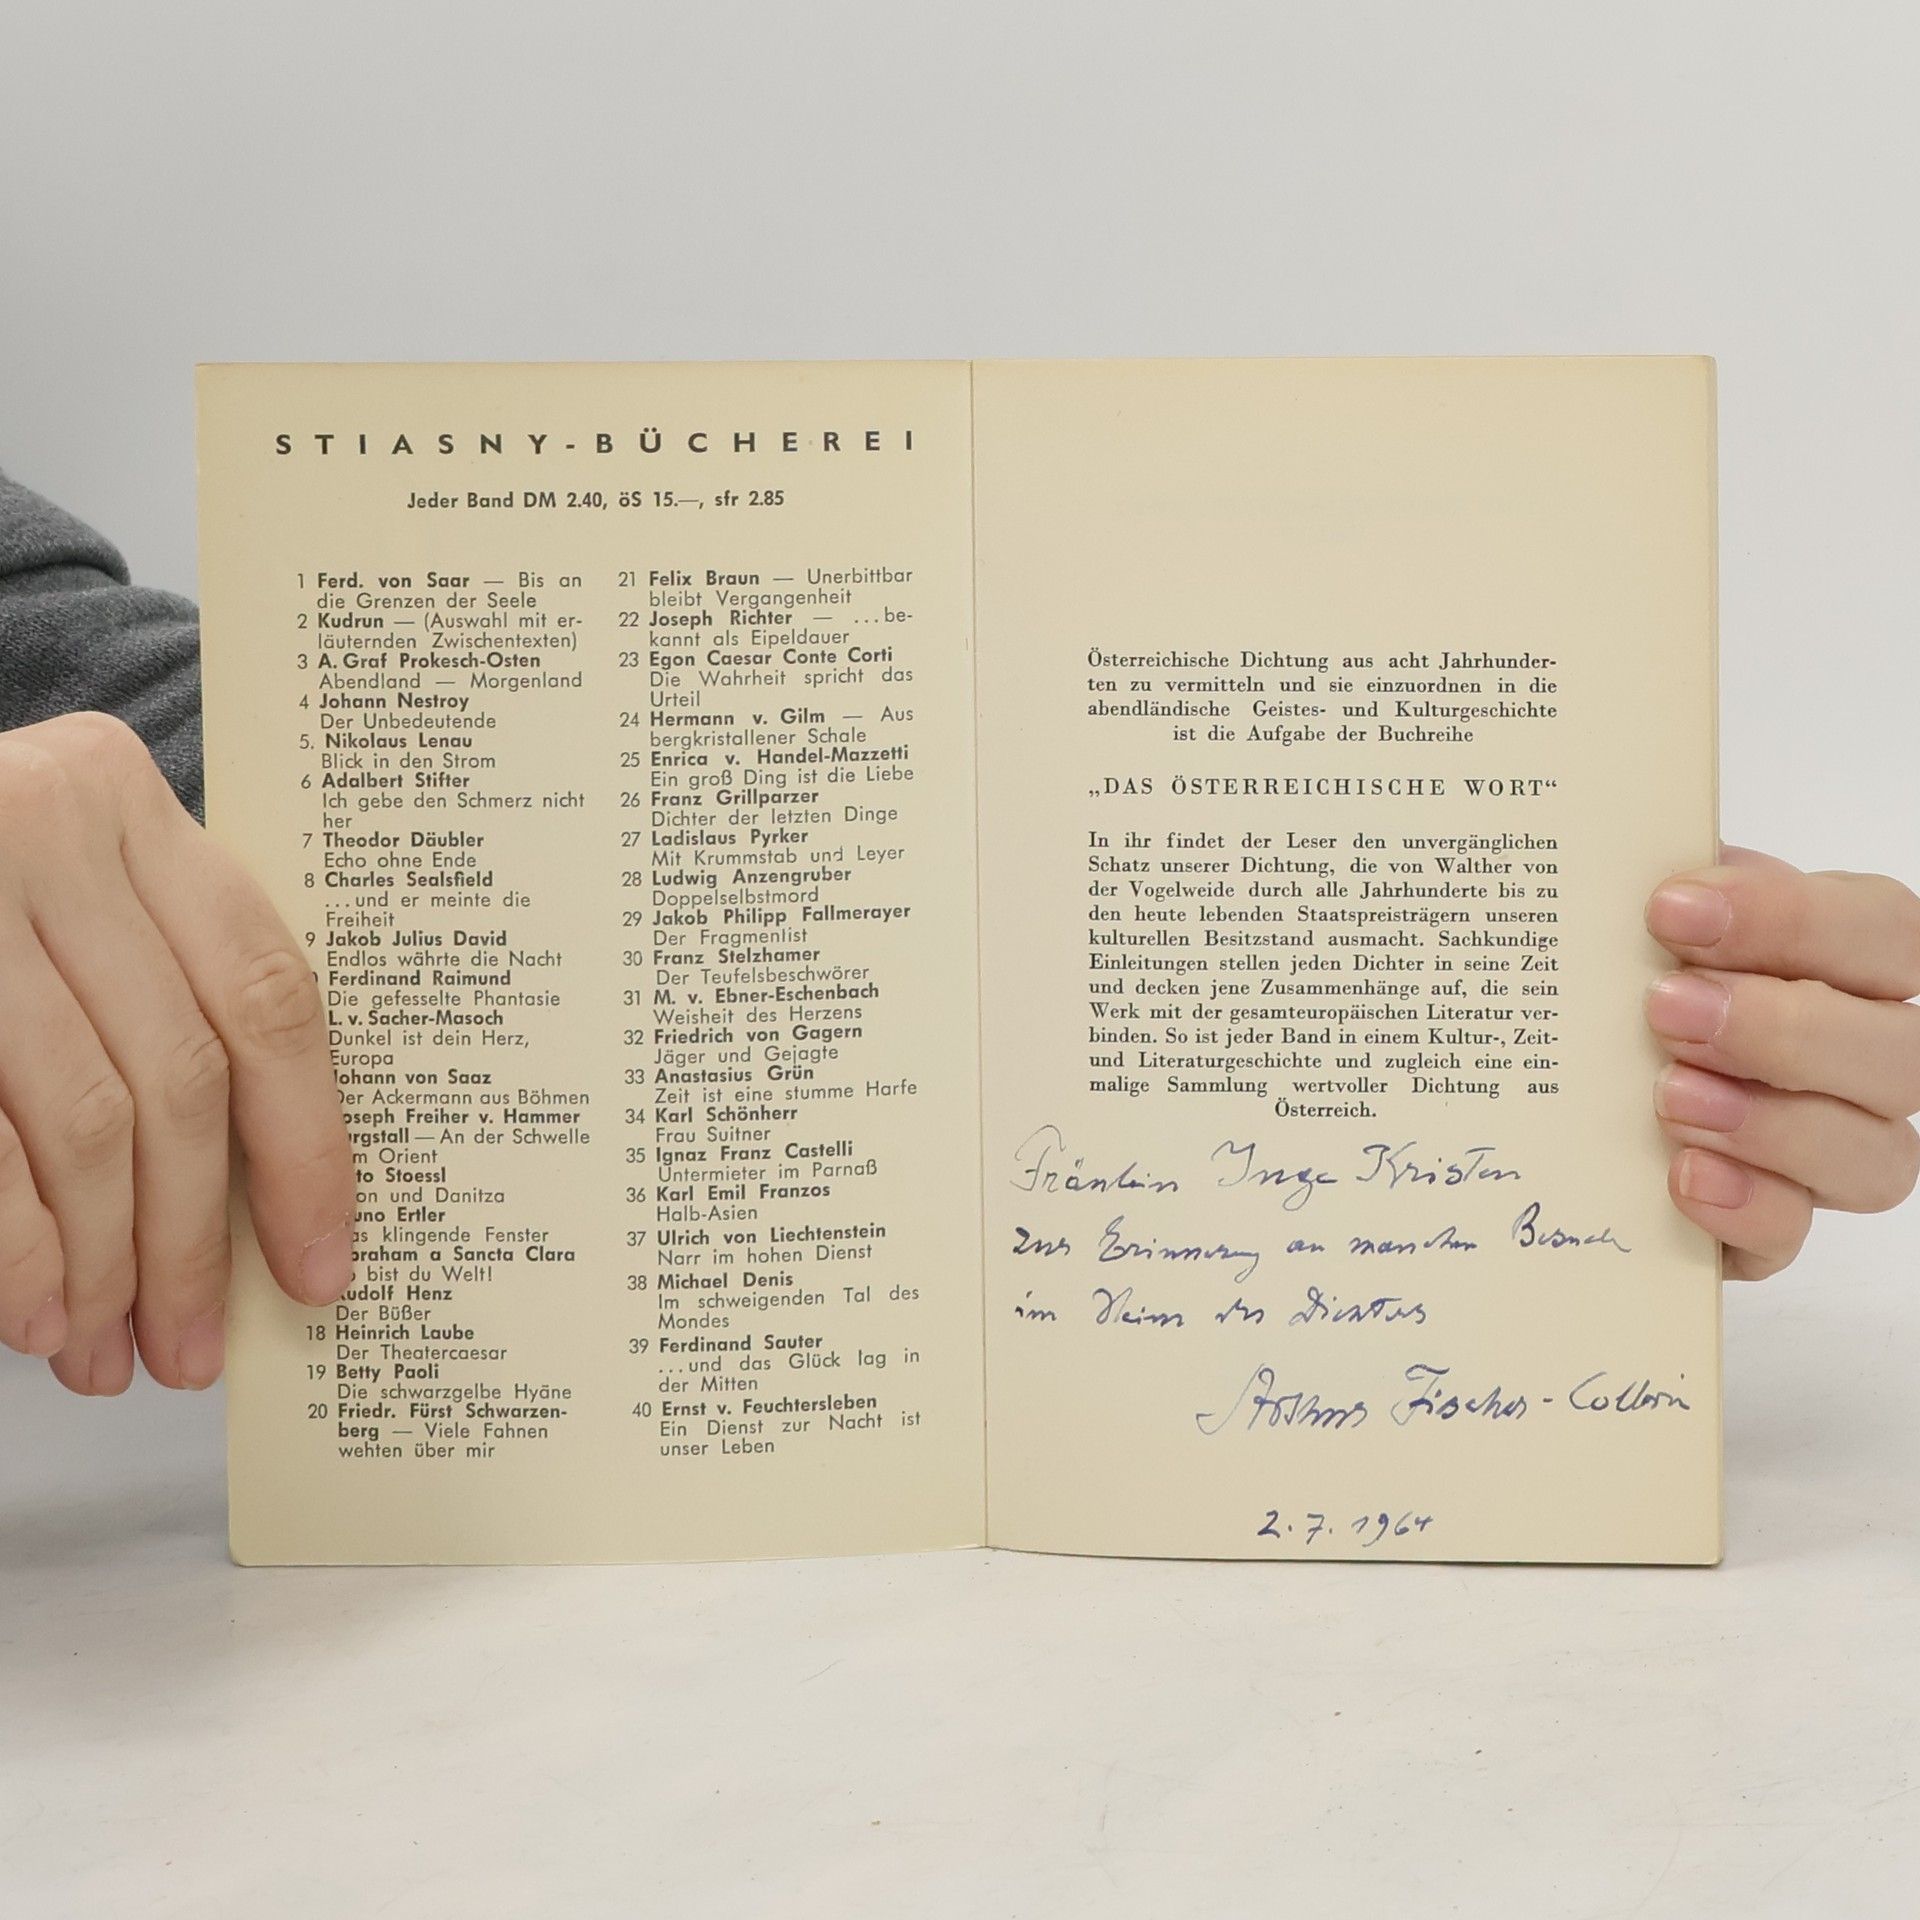 STIASNY-BÜCHEREI
Jeder Band DM 2.40, öS 15.—, sfr 2.85
1 Ferd. von Saar — Bis an
die Grenzen der Seele
2 Kudrun — (Auswahl mit er-
läuternden Zwischentexten)
3 A. Graf Prokesch-Osten
Abendland — Morgenland
4 Johann Nestroy
Der Unbedeutende
5. Nikolaus Lenau
Blick in den Strom
6 Adalbert Stifter
Ich gebe den Schmerz nicht
her
7 Theodor Däubler
Echo ohne Ende
8 Charles Sealsfield
...und er meinte die
Freiheit
9 Jakob Julius David
Endlos währte die Nacht
Ferdinand Raimund
Die gefesselte Phantasie
L. v. Sacher-Masoch
Dunkel ist dein Herz,
Europa
Johann von Saaz
Der Ackermann aus Böhmen
Joseph Freiher v. Hammer
urgstall — An der Schwelle
m Orient
to Stoessl
on und Danitza
uno Ertler
as klingende Fenster
braham a Sancta Clara
bist du Welt!
Rudolf Henz
Der Büßer
18 Heinrich Laube
Der Theatercaesar
19 Betty Paoli
Die schwarzgelbe Hyäne
20 Friedr. Fürst Schwarzen-
berg — Viele Fahnen
wehten über mir
21 Felix Braun — Unerbittbar
bleibt Vergangenheit
22 Joseph Richter — ...be-
kannt als Eipeldauer
23 Egon Caesar Conte Corti
Die Wahrheit spricht das
Urteil
24 Hermann v. Gilm — Aus
bergkristallener Schale
25 Enrica v. Handel-Mazzetti
Ein groß Ding ist die Liebe
26 Franz Grillparzer
Dichter der letzten Dinge
27 Ladislaus Pyrker
Mit Krummstab und Leyer
28 Ludwig Anzengruber
Doppelselbstmord
29 Jakob Philipp Fallmerayer
Der Fragmenlist
30 Franz Stelzhamer
Der Teufelsbeschwörer
31 M. v. Ebner-Eschenbach
Weisheit des Herzens
32 Friedrich von Gagern
Jäger und Gejagte
33 Anastasius Grün
Zeit ist eine stumme Harfe
34 Karl Schönherr
Frau Suitner
35 Ignaz Franz Castelli
Untermieter im Parnaß
36 Karl Emil Franzos
Halb-Asien
37 Ulrich von Liechtenstein
Narr im hohen Dienst
38 Michael Denis
Im schweigenden Tal des
Mondes
39 Ferdinand Sauter
...und das Glück lag in
der Mitten
40 Ernst v. Feuchtersleben
Ein Dienst zur Nacht ist
unser Leben
Österreichische Dichtung aus acht Jahrhunder-
ten zu vermitteln und sie einzuordnen in die
abendländische Geistes- und Kulturgeschichte
ist die Aufgabe der Buchreihe
„DAS ÖSTERREICHISCHE WORT“
In ihr findet der Leser den unvergänglichen
Schatz unserer Dichtung, die von Walther von
der Vogelweide durch alle Jahrhunderte bis zu
den heute lebenden Staatspreisträgern unseren
kulturellen Besitzstand ausmacht. Sachkundige
Einleitungen stellen jeden Dichter in seine Zeit
und decken jene Zusammenhänge auf, die sein
Werk mit der gesamteuropäischen Literatur ver-
binden. So ist jeder Band in einem Kultur-, Zeit-
und Literaturgeschichte und zugleich eine ein-
malige Sammlung wertvoller Dichtung aus
Österreich.
Fräulein Inge Kristen
zur Erinnerung an manchen Besuch
im Heim des Dichters
Arthur Fischer-Colbrie
2.7.1964